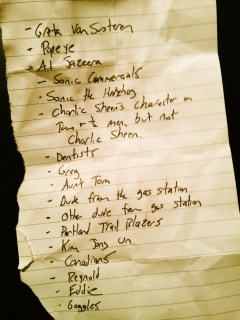 - Greta Van Susteren
- Popeye
- Al Jazeera
- Sonic Commercials
- Sonic the Hedgehog
- Charlie Sheen's Character on
Two + ½ men, but not
Charlie Sheen.
- Dentists
- Greg
- Aunt Pam
- Dude from the gas station
- Other dude from gas station
- Portland Trail Blazers
- Kim Jong Un
- Canadians
- Reynold
- Eddie
- Goggles